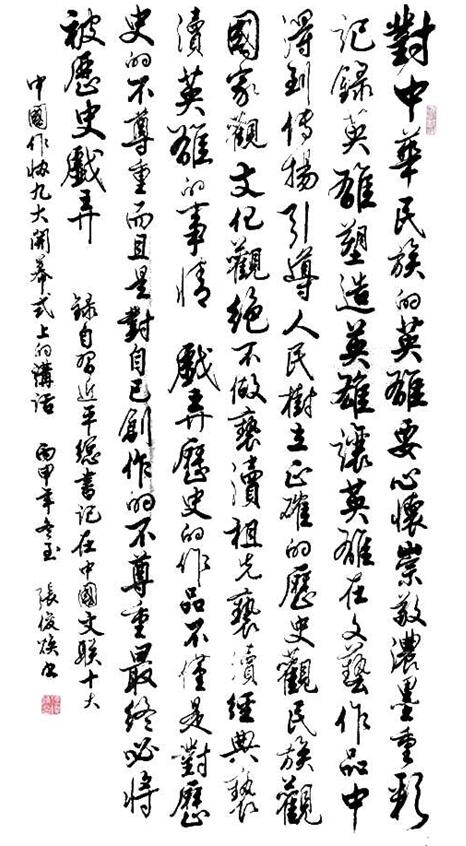 對中華民族的英雄要心懷崇敬濃墨重彩
記錄英雄塑造英雄讓英雄在文藝作品中
得到傳揚引導人民樹立正確的歷史觀民族觀
國家觀文化觀絕不做褻瀆祖先褻瀆經典褻
瀆英雄的事情 戲弄歷史的作品不僅是對歷
史的不尊重而且是對自己創作的不尊重最終必將
被歷史戲弄
錄自習近平總書記在中國文聯十大
中國作協九大開幕式上的講話 丙申年冬至 張俊煥書